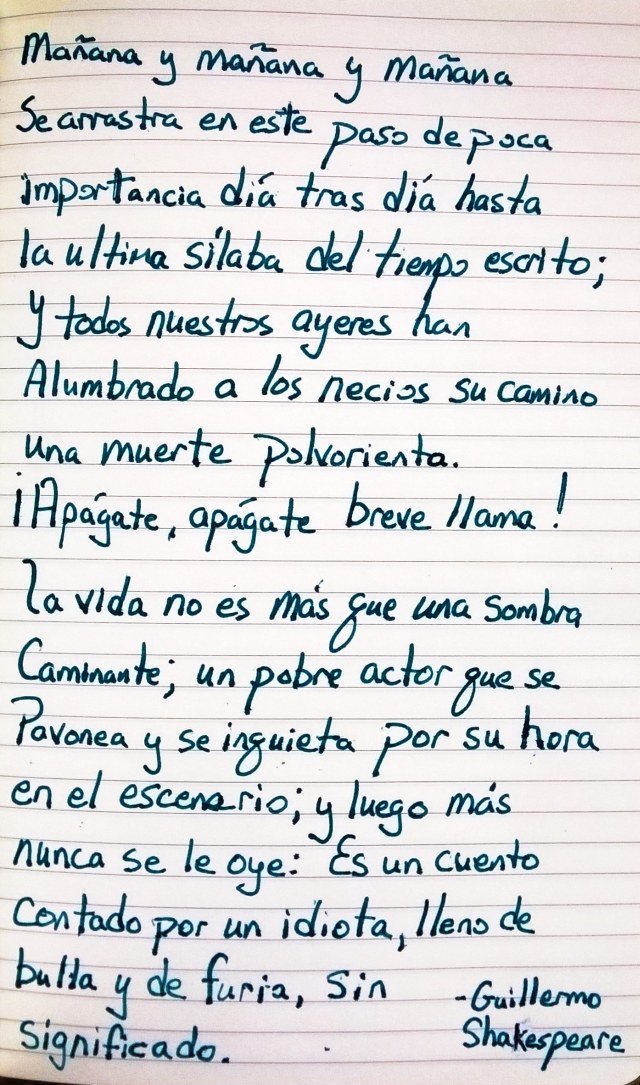 Mañana y mañana y mañana
Se arrastra en este paso de poca
importancia día tras día hasta
la ultima sílaba del tiempo escrito;
y todos nuestros ayeres han
Alumbrado a los necios su camino
una muerte polvorienta.
¡Apágate, apágate breve llama!
La vida no es más que una sombra
Caminante; un pobre actor que se
Pavonea y se inquieta por su hora
en el escenario; y luego más
nunca se le oye: Es un cuento
contado por un idiota, lleno de
bulla y de furia, sin
significado.
-Guillermo
Shakespeare